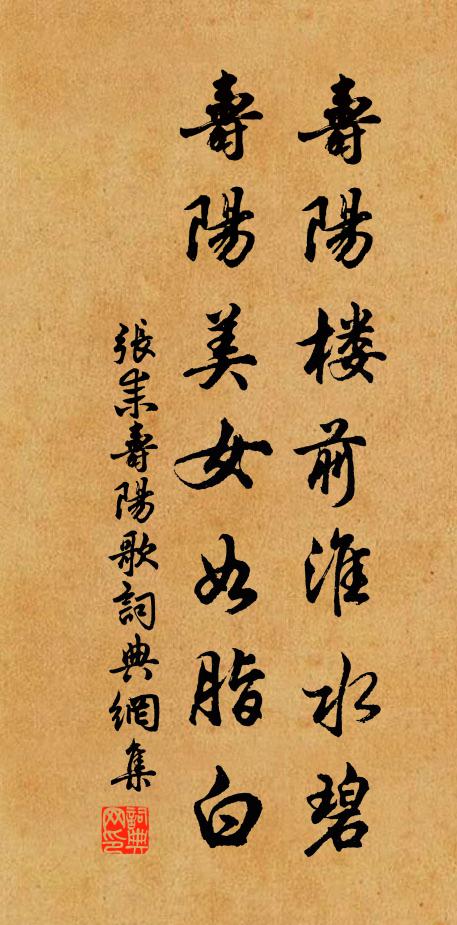 壽陽楼前淮水碧
壽陽美女如脂白
張耒壽陽歌詞典網集
詞典网印